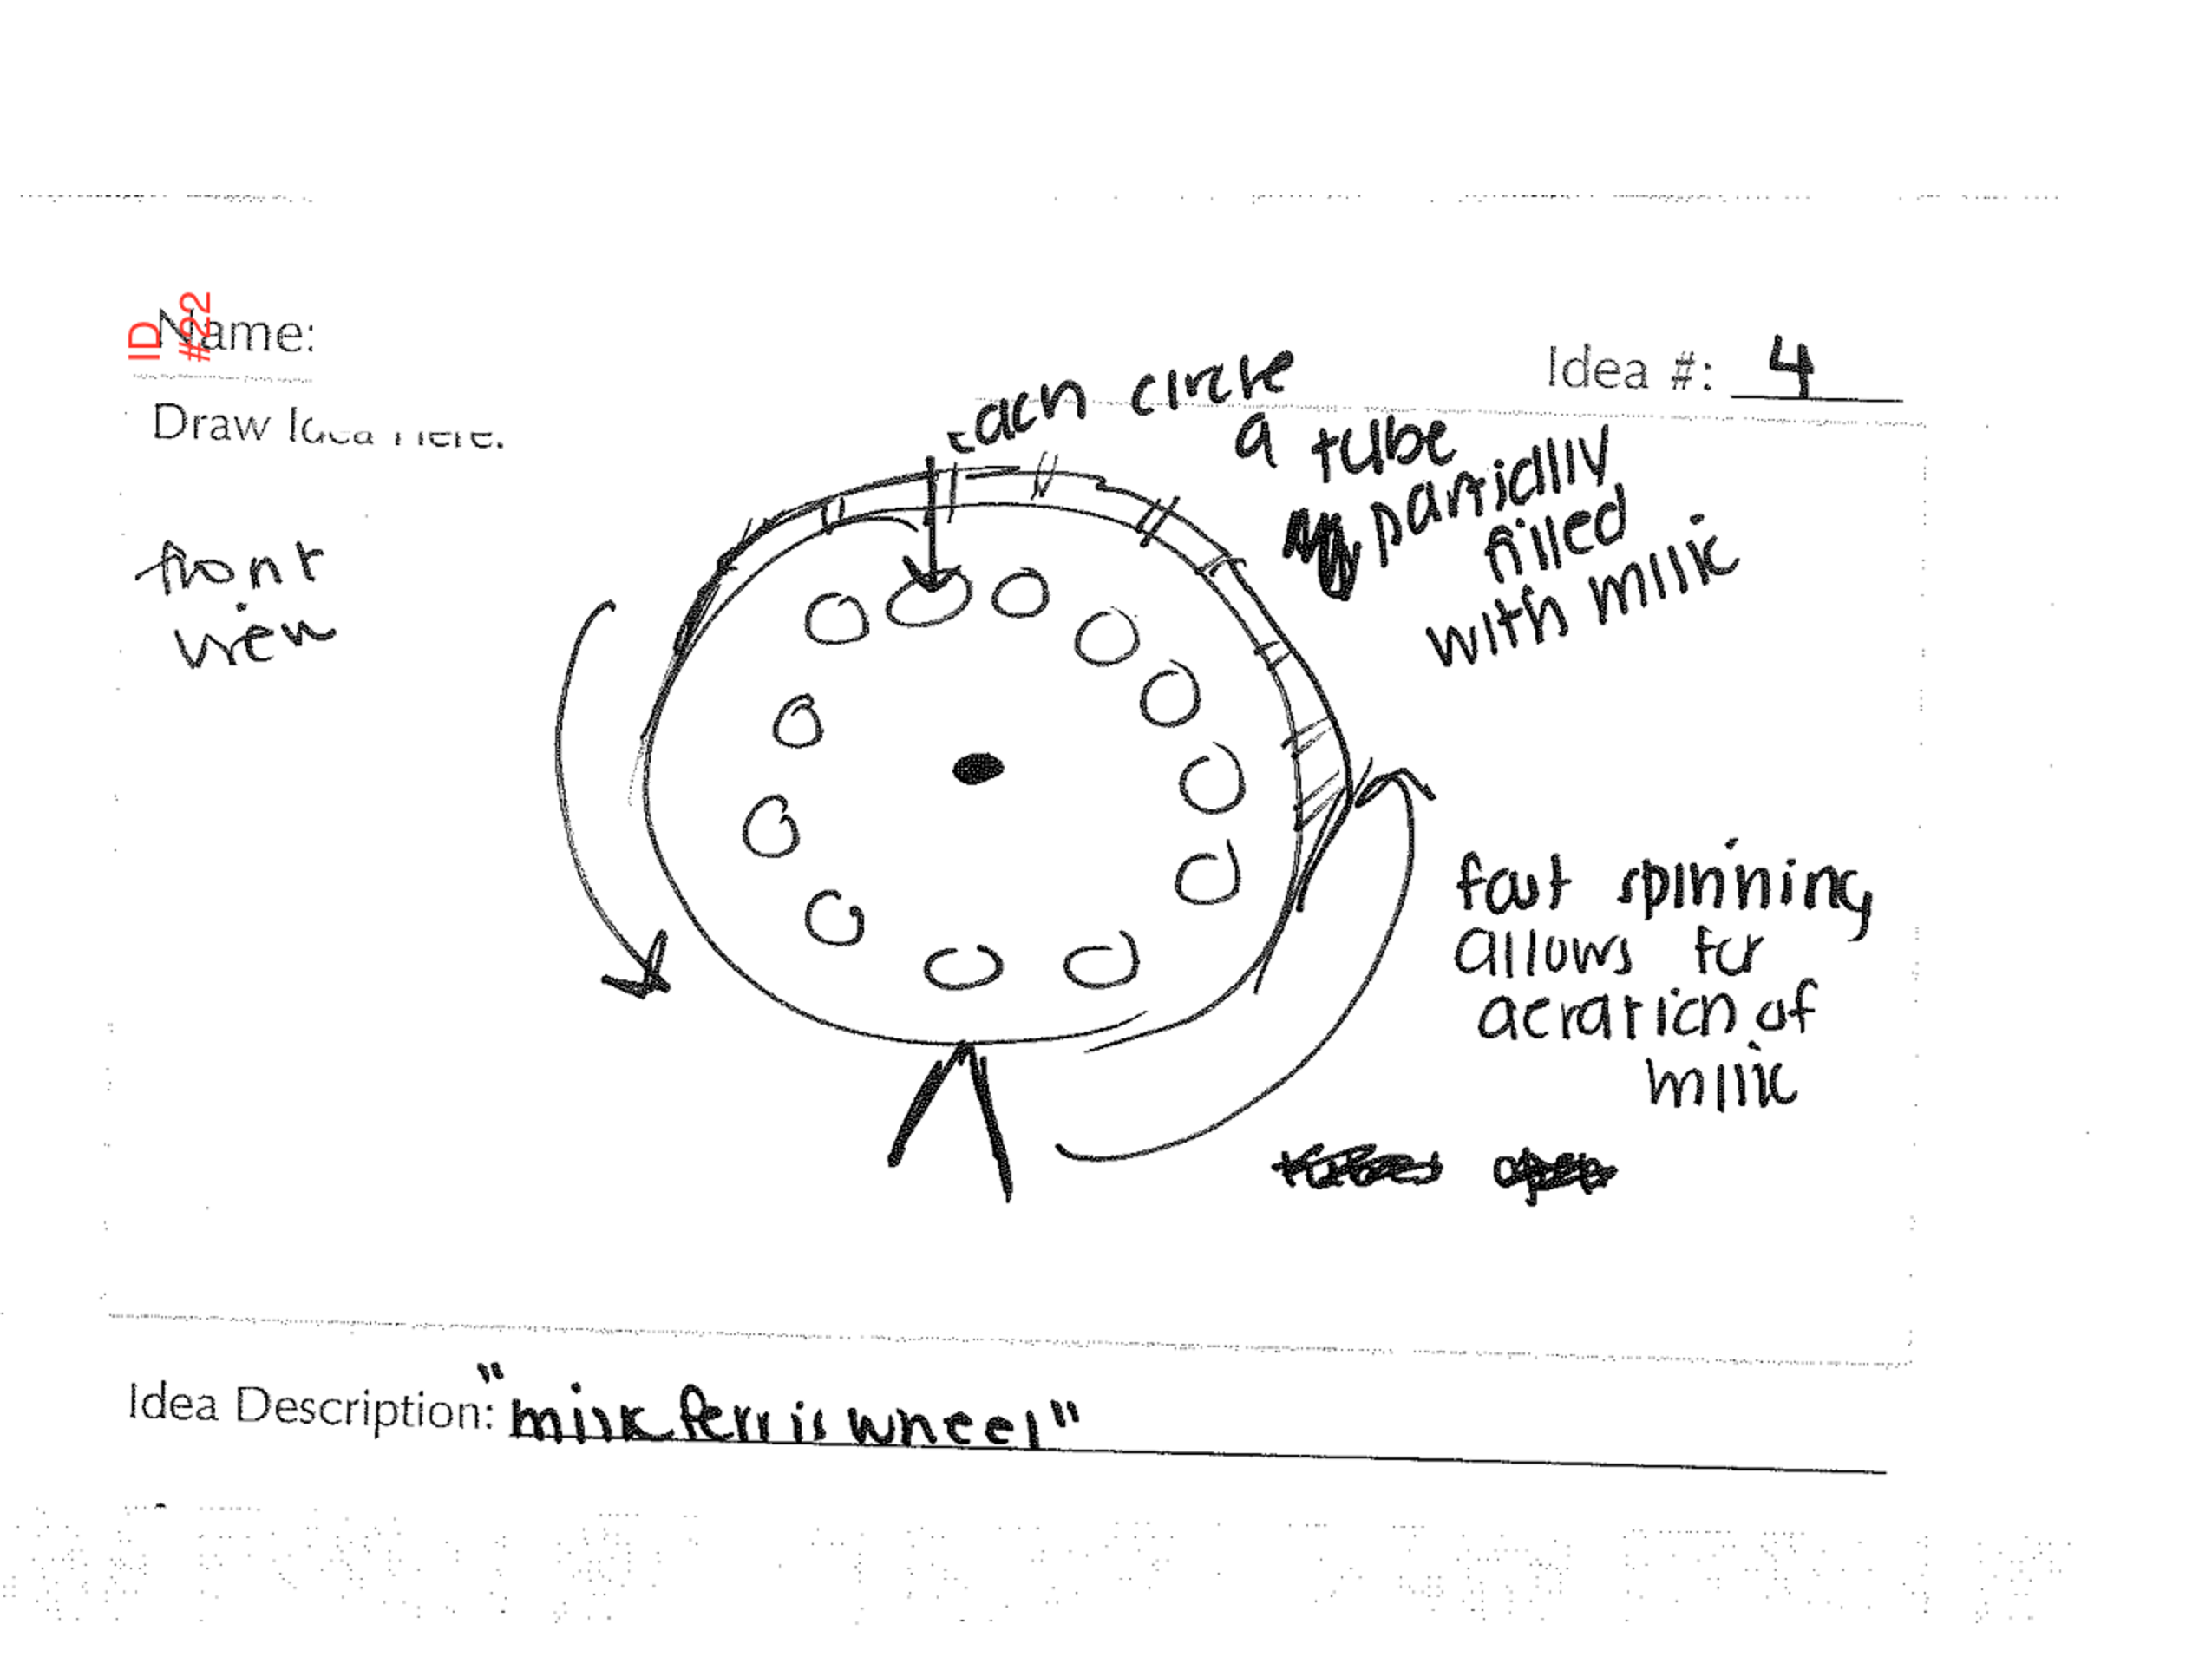 ID
#22
Name:
Idea #: 4
Draw Idea Here:
each circle
a tube
partially
filled
with milk
front
view
fast spinning
allows for
aeration of
milk
Idea Description: "milk ferris wheel"